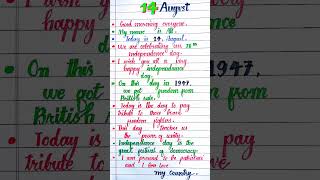 14 August
Good morning everyone.
My name is Ali.
Today is 14, August.
We are celebrating our 78th
independence day.
I wish you all a very
happy independence
day.
On this day in 1947,
we got freedom from
British rule.
Today is the day to pay
tribute to those brave
freedom fighters.
This day teaches us
the power of unity.
Independence day is the
great festival of democracy.
I am proud to be patriotic
and I love
my country..
happy
day
On this
we got
British
Today is
tribute to
1947
from
to pay
brave